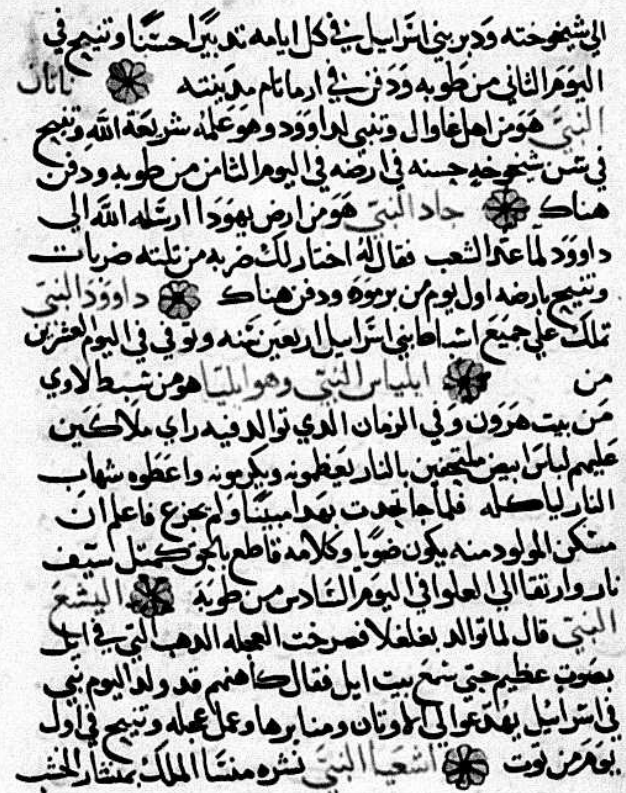 الي شيخوخته ودبر بني اسراييل في كل ايامه تدبيرًا حسنًا وتنيح في
اليوم الثاني من طوبه ودفن في ارماتام مدينته ناتان
النبي هو من اهل غاوال وتنبي لداوود وهو علمه شريعة الله وتنيح
في سن شيخوخه حسنه في ارضه في اليوم الثامن من طوبه ودفن
هناك جاد النبي هو من ارض يهودا ارسله الله الي
داوود لما عد الشعب فقال له اختار لك ضربه من تلته ضربات
وتنيح بارضه اول يوم من برموده ودفن هناك داوود النبي
تملك علي جميع اسباط بني اسراييل اربعين سنه وتوفي في اليوم العشرين
من ايلياس النبي وهو ايليا هو من سبط لاوي
من بيت هرون وفي الزمان الدي توالد فيه راي ملاكين
عليهم لباس ابيض ملتحفين بالنار يعظمونه ويكرمونه واعطوه شهاب
النار لياكله فلما جا تحدت بهدا مبينًا ولم يجزع فاعلم ان
مسكن المولود منه يكون ضويًا وكلامه قاطع بالحق كمتل سيف
نار وارتقا الي العلو في اليوم السادس من طوبة اليشع
النبي قال لما توالد بغلغلا فصرخت العجله الدهب التي في ايل
بصوت عظيم حتي سمع بيت ايل فقال كاهنهم قد ولد اليوم نبي
في اسراييل يهد عوالي الاوتان ومنابرها وعمل عجله وتنيح في اول
يوم من توت اشعيا النبي نشره منسا الملك بمنشار الخشب